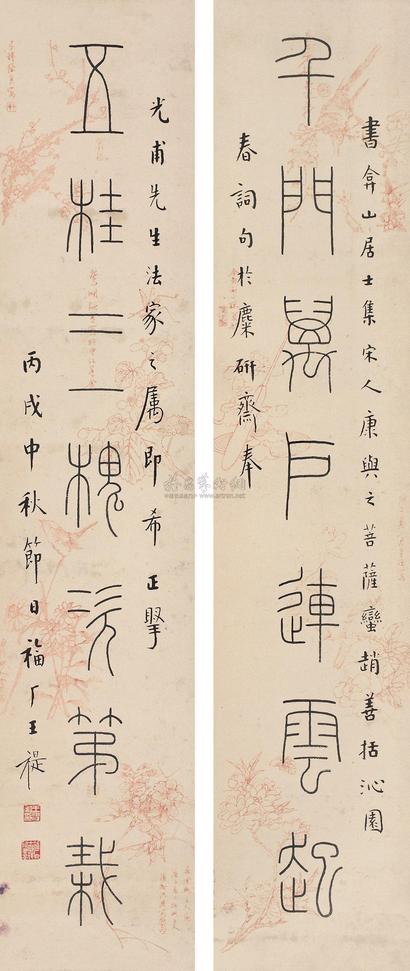 千門萬戶連雲起
書弇山居士集宋人康與之菩薩蠻趙善括沁園
春詞句於麋研齋奉
五桂三槐次第栽
光甫先生法家之属即希正擘
丙戌中秋節日福厂王禔